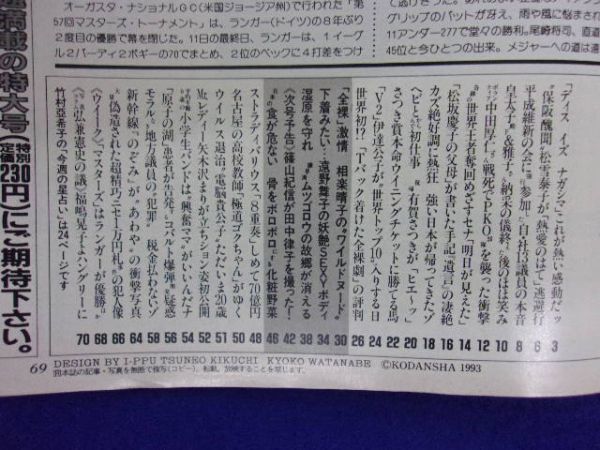 オーガスタ・ナショナルGC(米国ジョージア州)で行われた「第
57回マスターズ・トーナメント」は、ランガー(ドイツ)の8年ぶり
2度目の優勝で幕を閉じた。11日の最終日、ランガーは、1イーグ
ル2バーディ2ボギーの70でまとめ、2位のベックに4打差をつけ
グリップのパットが冴え、雨や風に悩まされ
11アンダー277で堂々の勝利。尾崎将司、直道
45位と今ひとつの出来。メジャーへの道は遠
満載の特大号
特別定価230円にご期待下さい。
「ディス イズ ナガシマ」これが熱い感動だッ 3
保阪醜聞 松雪泰子が、熱愛のはて、逃避行 6
平成維新の会に参加した自社13議員の本音 8
皇太子殿下&雅子さま「納采の儀終えた後のほほ笑み 10
中田厚仁さん戦死でPKOを襲った衝撃 12
世界王者奪回めざすセナ「明日が見えた」 14
松坂慶子の父母が書いた手記「遺言」の凄絶 16
カズ絶好調に熱狂 強い日本が帰ってきたゾ 18
ヘビとの初仕事に有賀さつきが「ヒエ〜ッ」 20
さつき賞本命ウイニングチケットに勝てる馬 22
「V・2」伊達公子が「世界トップ10」入りする日 24
世界初!?「Tバック着けた全裸劇」の評判 26
「全裸、激情」相楽晴子の“ワイルドヌード” 30
下着みたい…遠野舞子の妖艶SEXYボディ 34
湿原を守れ ムツゴロウの故郷が消える 38
《次号予告》篠山紀信が田中律子を撮った! 42
食が危ない 骨をボロボロにする化粧野菜 46
ストラディバリウス「8重奏」しめて70億円 48
名古屋の高校教師「極道ゴクちゃん」がゆく 50
ウイルス退治 電脳貴公子ただいま20歳 51
Mr.レディー矢木沢まりが立ちション姿初公開 52
小学生バンドは興奮ママがいいんだナ 54
「原子の湖」患者が告発するコバルト爆弾疑惑 56
モラルなき地方議員の犯罪 税金払わないゾ 58
新幹線「のぞみ」が「あわや」の衝撃写真 64
偽造された超精巧ニセ1万円札の犯人像 66
《ウイーク》マスターズはランガーが優勝ほか 68
弘兼憲史の議 福嶋晃子よハングリーに 70
竹村亜希子の「今週の星占い」は24ページです
69
DESIGN BY I-PPU TSUNEO KIKUCHI KYOKO WATANABE
©KODANSHA 1993
本誌の記事・写真を無断で複写(コピー)、転載、放映することを禁じます。